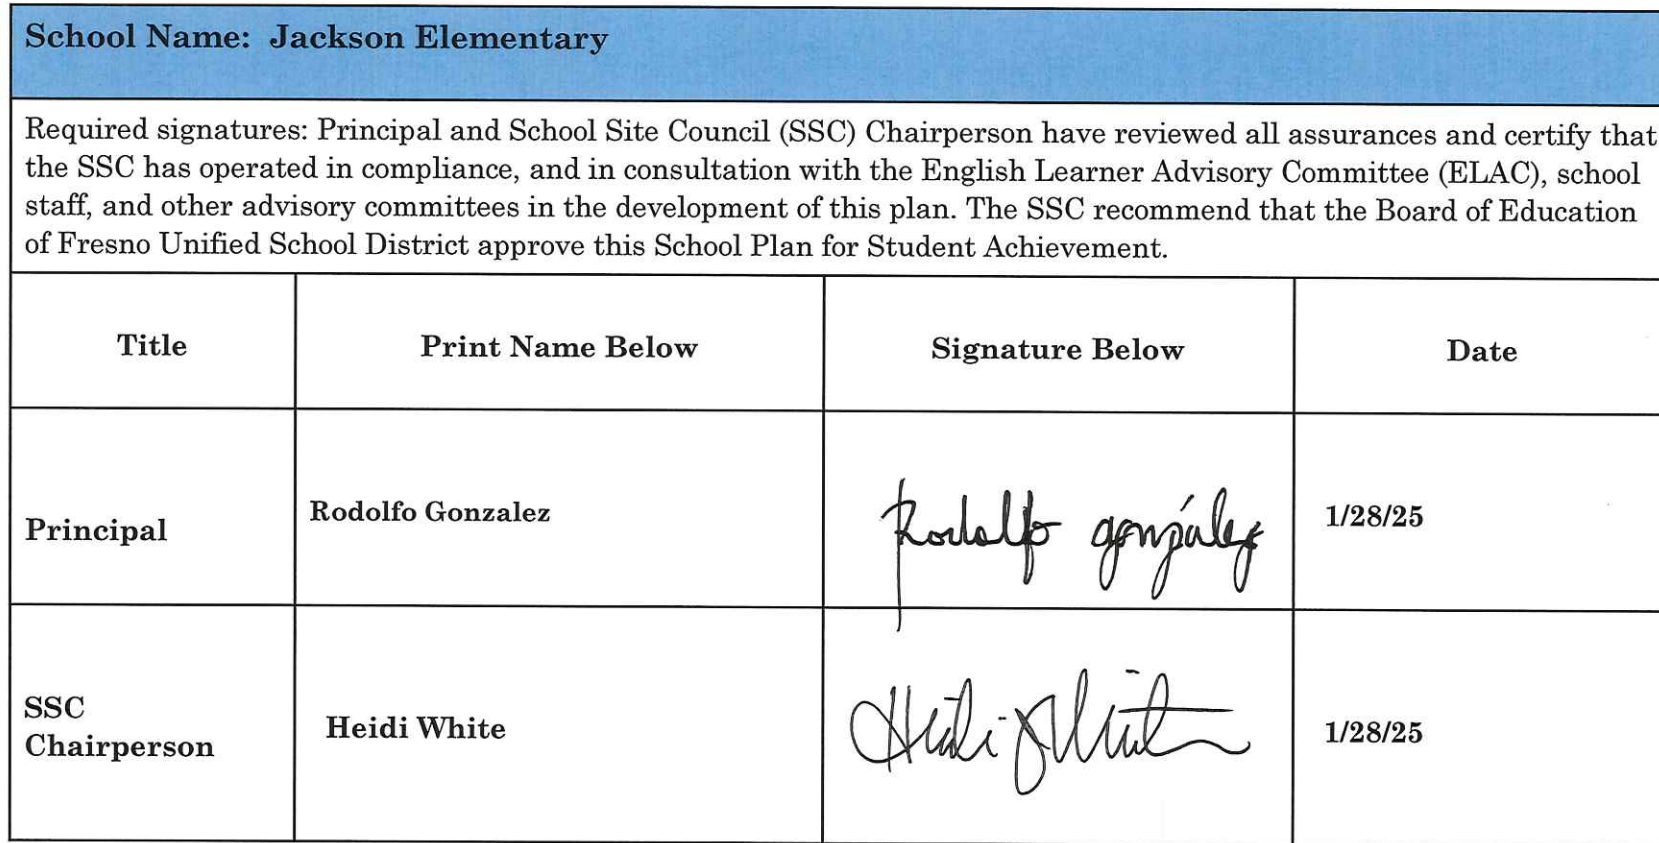 School Name: Jackson Elementary
Required signatures: Principal and School Site Council (SSC) Chairperson have reviewed all assurances and certify that
the SSC has operated in compliance, and in consultation with the English Learner Advisory Committee (ELAC), school
staff, and other advisory committees in the development of this plan. The SSC recommend that the Board of Education
of Fresno Unified School District approve this School Plan for Student Achievement.
Title Print Name Below Signature Below Date
Principal Rodolfo Gonzalez Rodolfo gonzález 1/28/25
SSC
Chairperson Heidi White Heidi J White 1/28/25